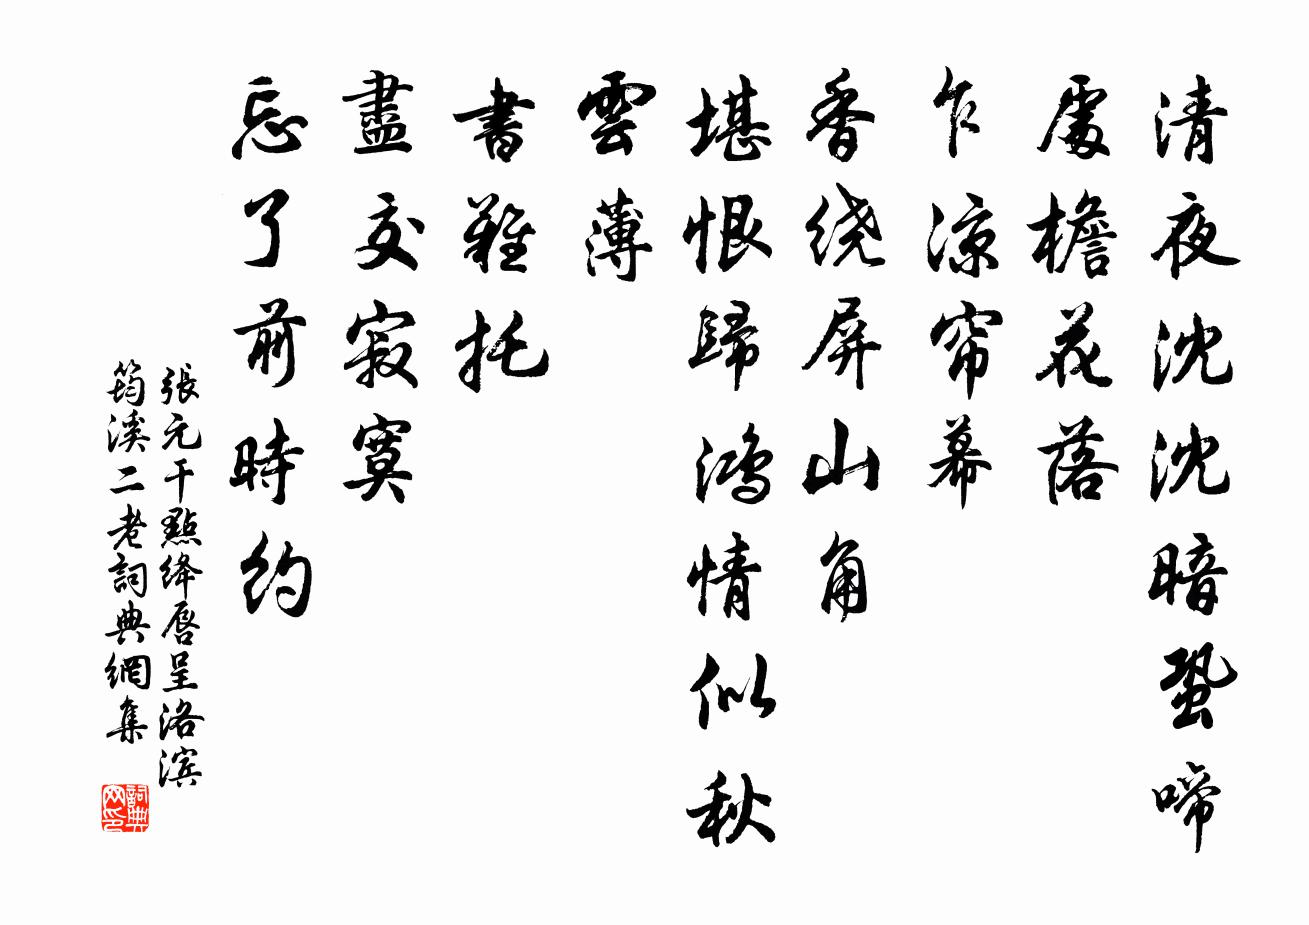 清夜沈沈暗蛩啼
處檐花落
乍涼帘幕
香绕屏山角
堪恨歸鴻情似秋
雲薄
書難托
盡交寂寞
忘了前時約
張元干點绛唇呈洛滨
筠溪二老詞典網集
詞典
网印